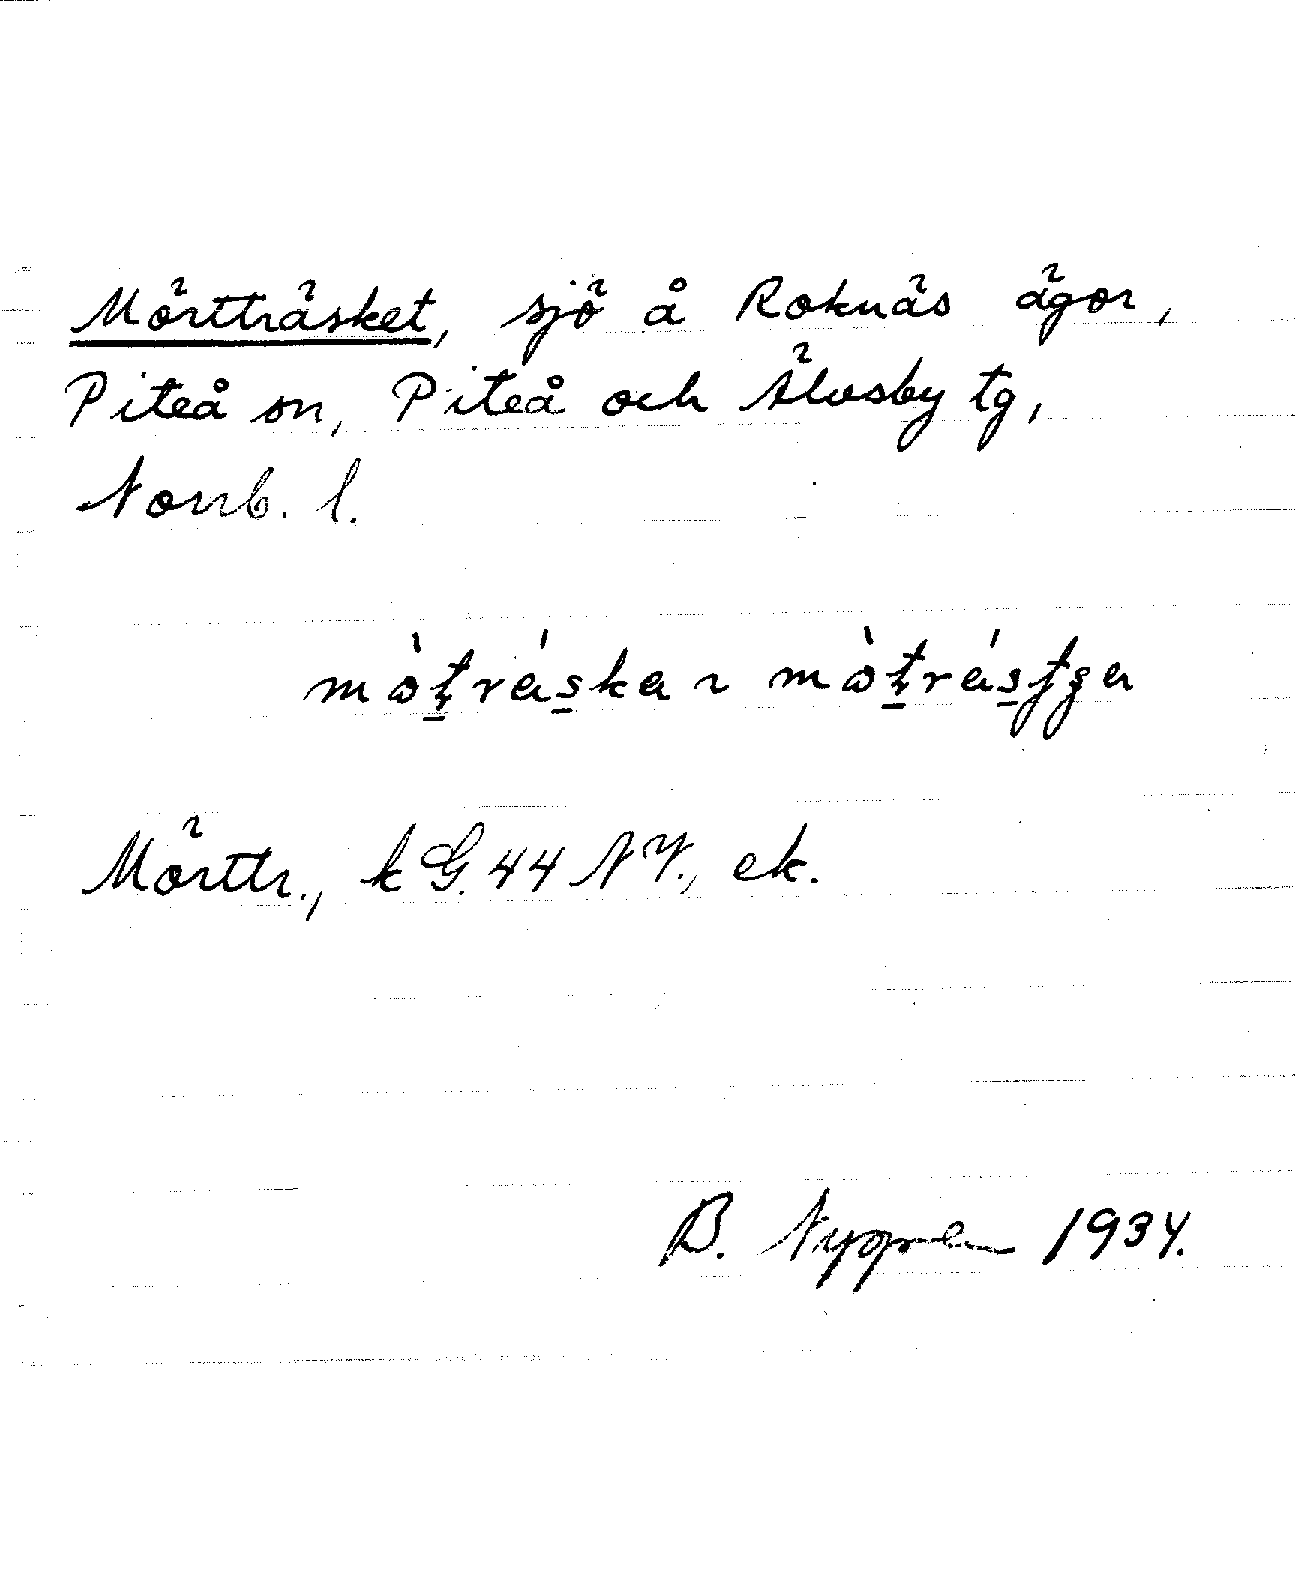 Mörtträsket, sjö å Roknäs ägor,
Piteå sn, Piteå och Älvsby tg,
Norrb. l.
mò̱tráska ~ mò̱trástʃa
Mörttr., k G. 44 NV., ek.
B. 1934.